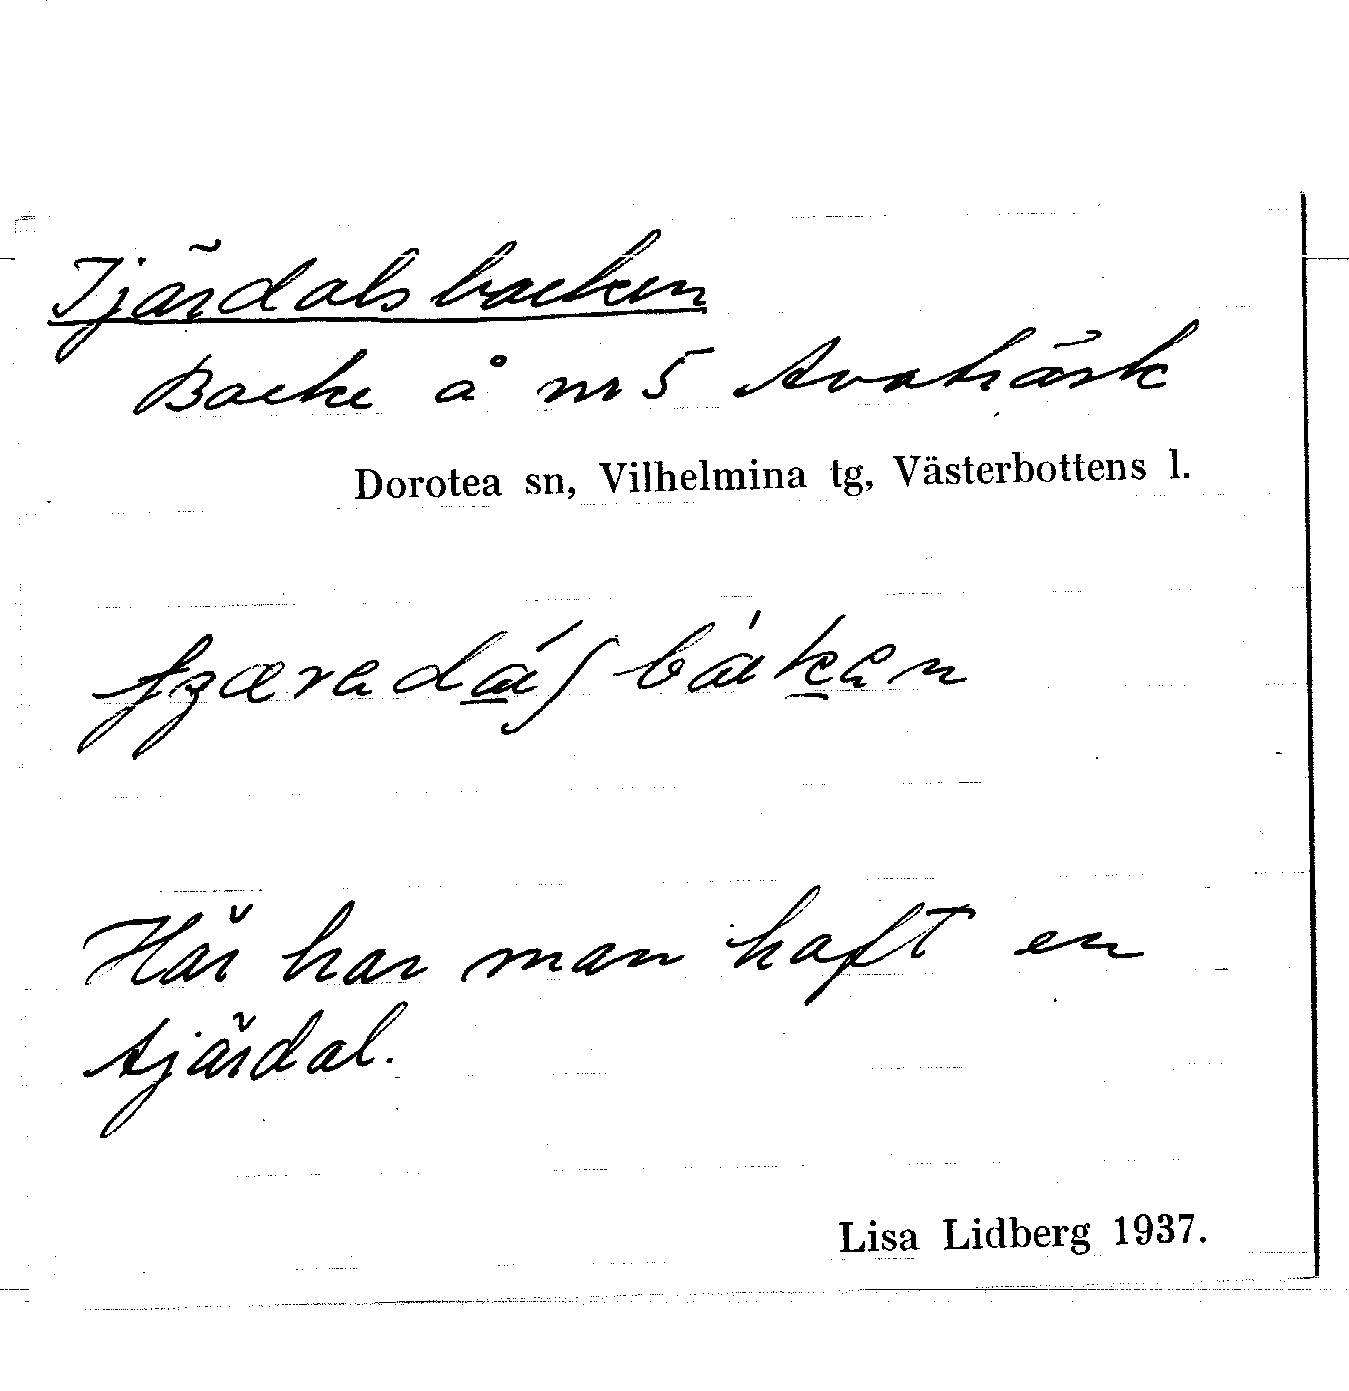 Tjärdalsbacken
Backe å nr 5 Avaträsk
Dorotea sn, Vilhelmina tg, Västerbottens l.
Här har man haft en
tjärdal.
Lisa Lidberg 1937.